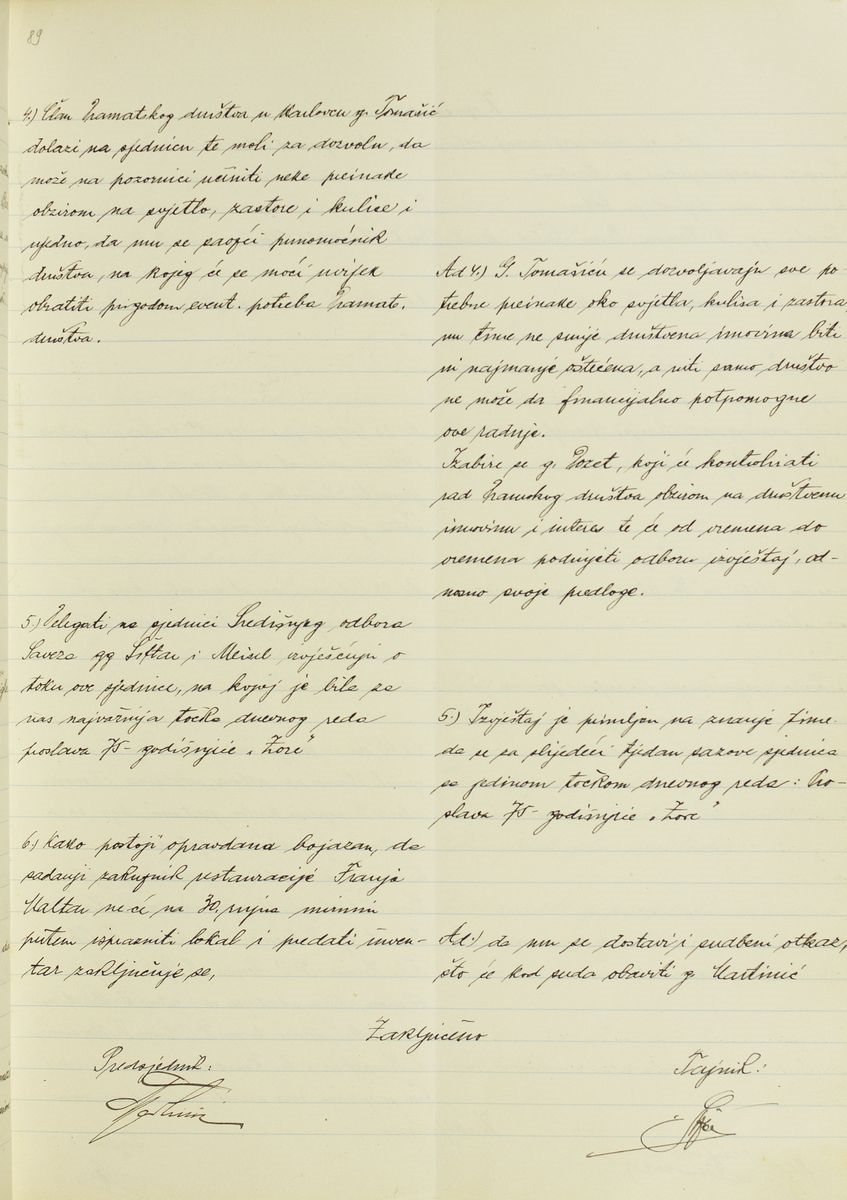 89
4.) Član Dramatskog društva u Karlovcu g. Tomašić
dolazi na sjednicu te moli za dozvolu, da
može na pozornici učiniti neke preinake
obzirom na svjetlo, zastore i kulise i
ujedno, da mu se saopći punomoćnik
društva, na kojeg će se moći uvijek
obratiti prigodom event. potreba Dramats.
društva.
Ad 4.) G. Tomašiću se dozvoljavaju sve po-
trebne preinake oko svjetla, kulisa i zastora,
nu time ne smije društvena imovina biti
ni najmanje oštećena, a niti samo društvo
ne može da financijalno potpomogne
ove radnje.
Izabire se g. Pozet, koji će kontrolirati
rad Dramskog društva obzirom na društvenu
imovinu i interes te će od vremena do
vremena podnijeti odboru izvještaj, od-
nosno svoje predloge.
5.) Delegati na sjednici Središnjeg odbora
Saveza gg Šiftar i Meisel izvješćuju o
toku ove sjednice, na kojoj je bila za
nas najvažnija točka dnevnog reda
proslava 75-godišnjice „Zore"
5.) Izvještaj je primljen na znanje time
da se za slijedeći tjedan sazove sjednica
sa jedinom točkom dnevnog reda: Pro-
slava 75-godišnjice „Zore"
6.) Kako postoji opravdana bojazan, da
sadanji zakupnik restauracije Franjo
Maltar neće na 30. rujna mirnim
putem isprazniti lokal i predati inven-
tar zaključuje se,
Ad:) da mu se dostavi i sudbeni otkaz,
što će kod suda obaviti g. Martinić
Zaključeno
Predsjednik:
Tajnik: